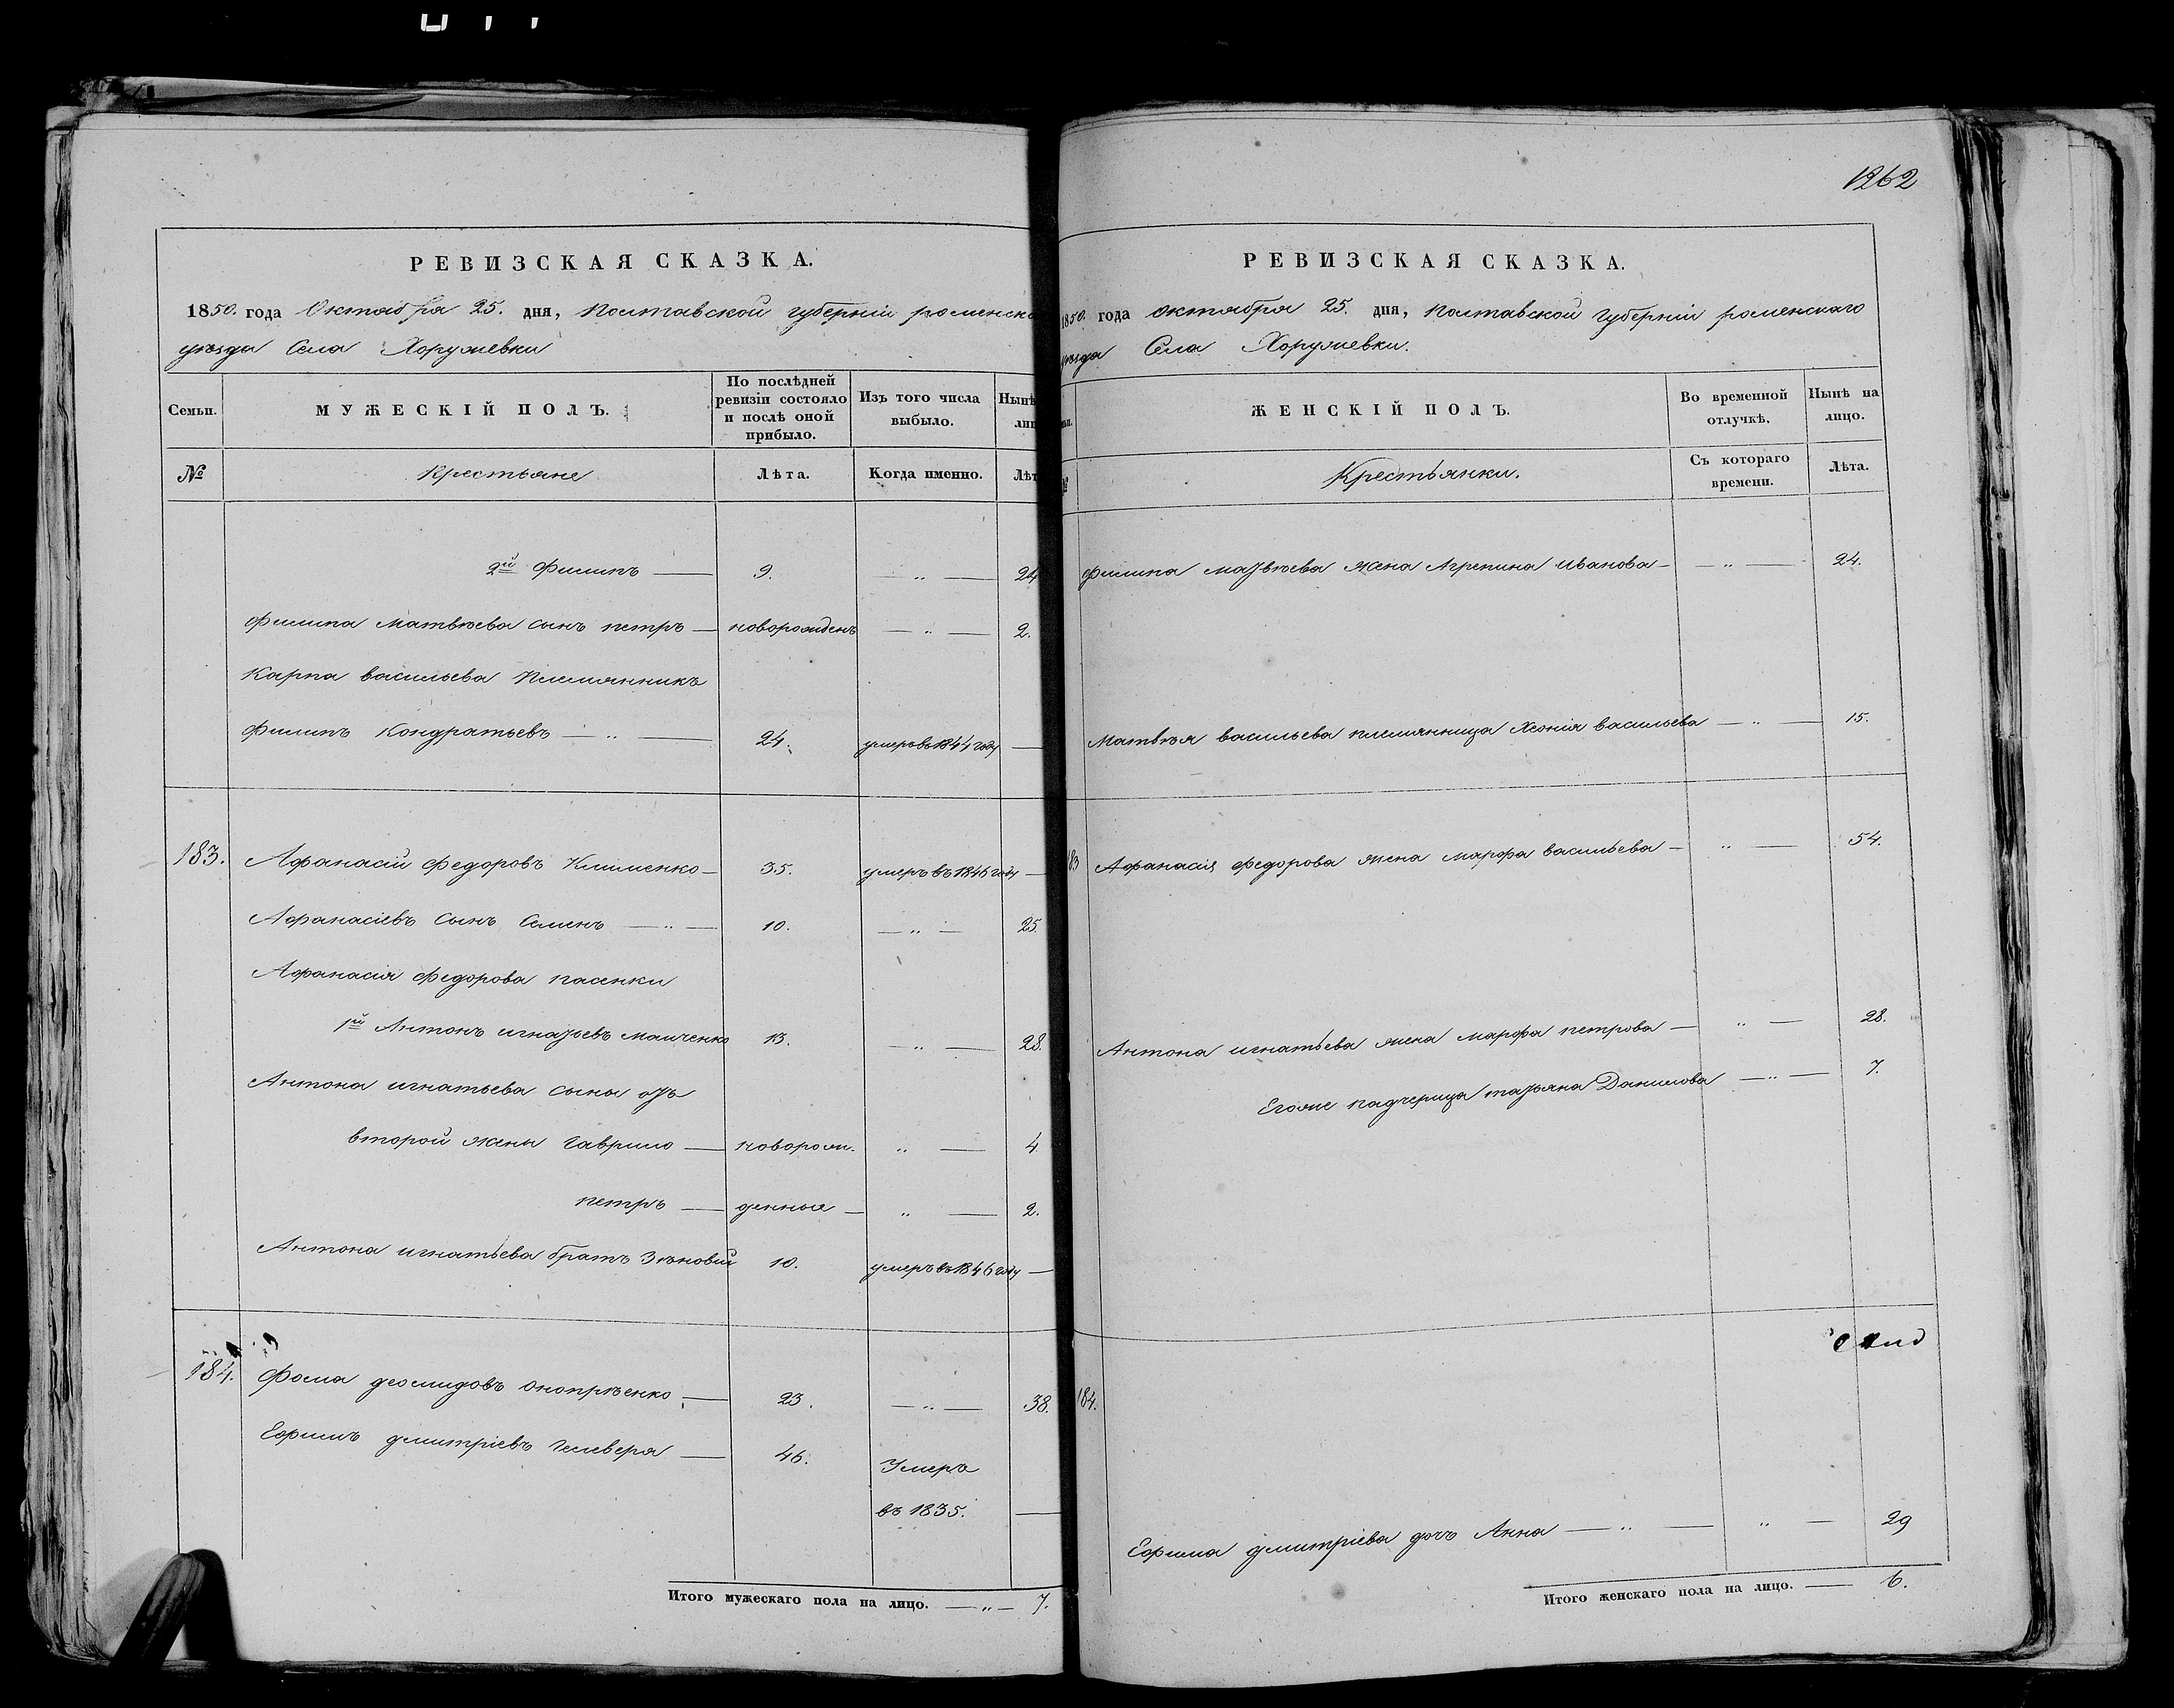 РЕВИЗСКАЯ СКАЗКА.
1850. года Октября 25. дня, Полтавской губерніи роменска
уѣзда Села Хоружевки
Семьи.
МУЖЕСКІЙ ПОЛЪ.
По послѣдней
ревизіи состояло
и послѣ оной
прибыло.
Изъ того числа
выбыло.
Нынѣ
лиц
№
Крестьяне
Лѣта.
Когда именно.
Лѣт
2й Филипъ — 9. — „ — 24
Филипа Матвѣева сынъ петръ — новорожденъ — „ — 2.
Карпа васильева Племянникъ
Филипъ Кондратьевъ — „ — 24. умеръ въ 1844 году —
183. Афанасій федоровъ Клименко — 35. умеръ въ 1846 году —
Афанасіевъ сынъ Семенъ — „ — 10. — „ — 25.
Афанасія федорова пасенки
1й Антонъ игнатьевъ Маиченко 13. — „ — 28.
Антона игнатьева сыны отъ
второй жены гаврило — новорож. „ — 4
петръ — денные — „ — 2.
Антона игнатьева братъ Зѣновій 10. умеръ въ 1846 году —
184. Фома деомидовъ онопрѣенко — 23. — „ — 38.
Ефимъ дмитріевъ гелевера — 46. Умеръ
въ 1835. —
Итого мужескаго пола на лицо. — „ — 7.
1262
РЕВИЗСКАЯ СКАЗКА.
1850. года октября 25. дня, полтавской губерніи роменскаго
уѣзда Села Хоружевки.
ЖЕНСКІЙ ПОЛЪ.
Во временной
отлучкѣ.
Нынѣ на
лицо.
Крестьянки.
Съ котораго
времени.
Лѣта.
филипа матвѣева жена Агрепина иванова — — „ — 24.
Матвѣя васильева племянница Хеонія васильева — „ — 15.
83 Афанасія федорова жена марфа васильева — „ — 54.
Антона игнатьева жена марфа петрова — „ — 28.
Егоже падчерица татьяна Данилова — „ — 7.
184.
Ефима дмитріева дочь Анна — „ — „ — 29
Итого женскаго пола на лицо. — 6.